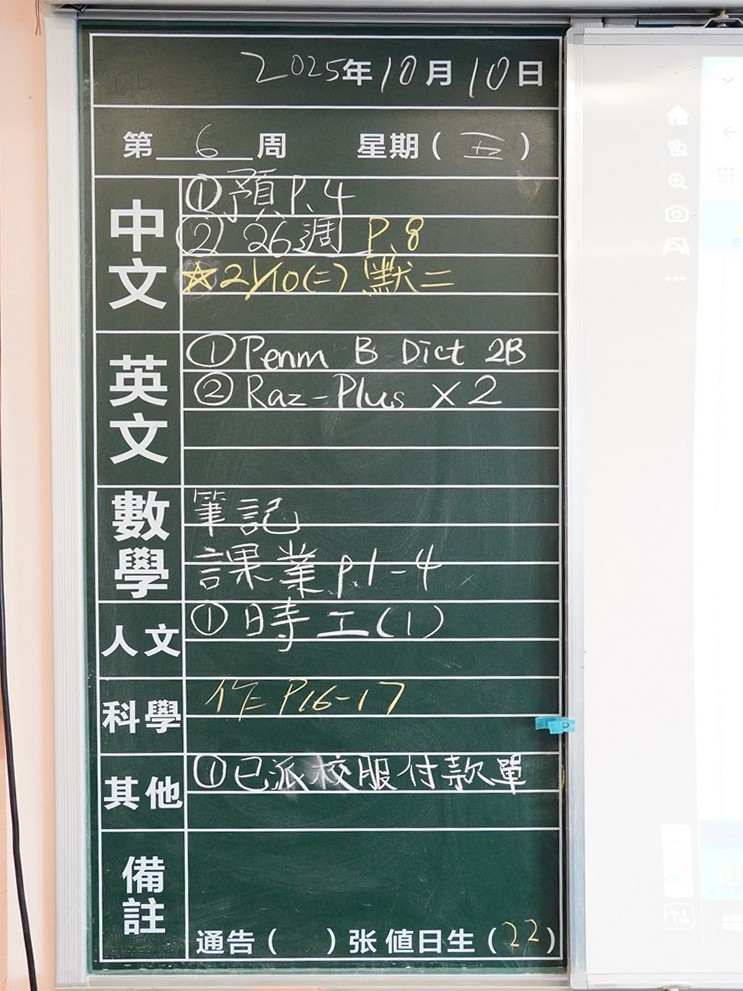 2025年10月10日
第 6 周 星期(五)
中文
①預P.4
②26週 P.8
☆21/10(二)默二
英文
①Penm B Dict 2B
②Raz-Plus ×2
數學
筆記
課業p.1-4
人文
①時工(1)
科學
作P16-17
其他
①已派校服付款單
備註
通告( )张 值日生(22)